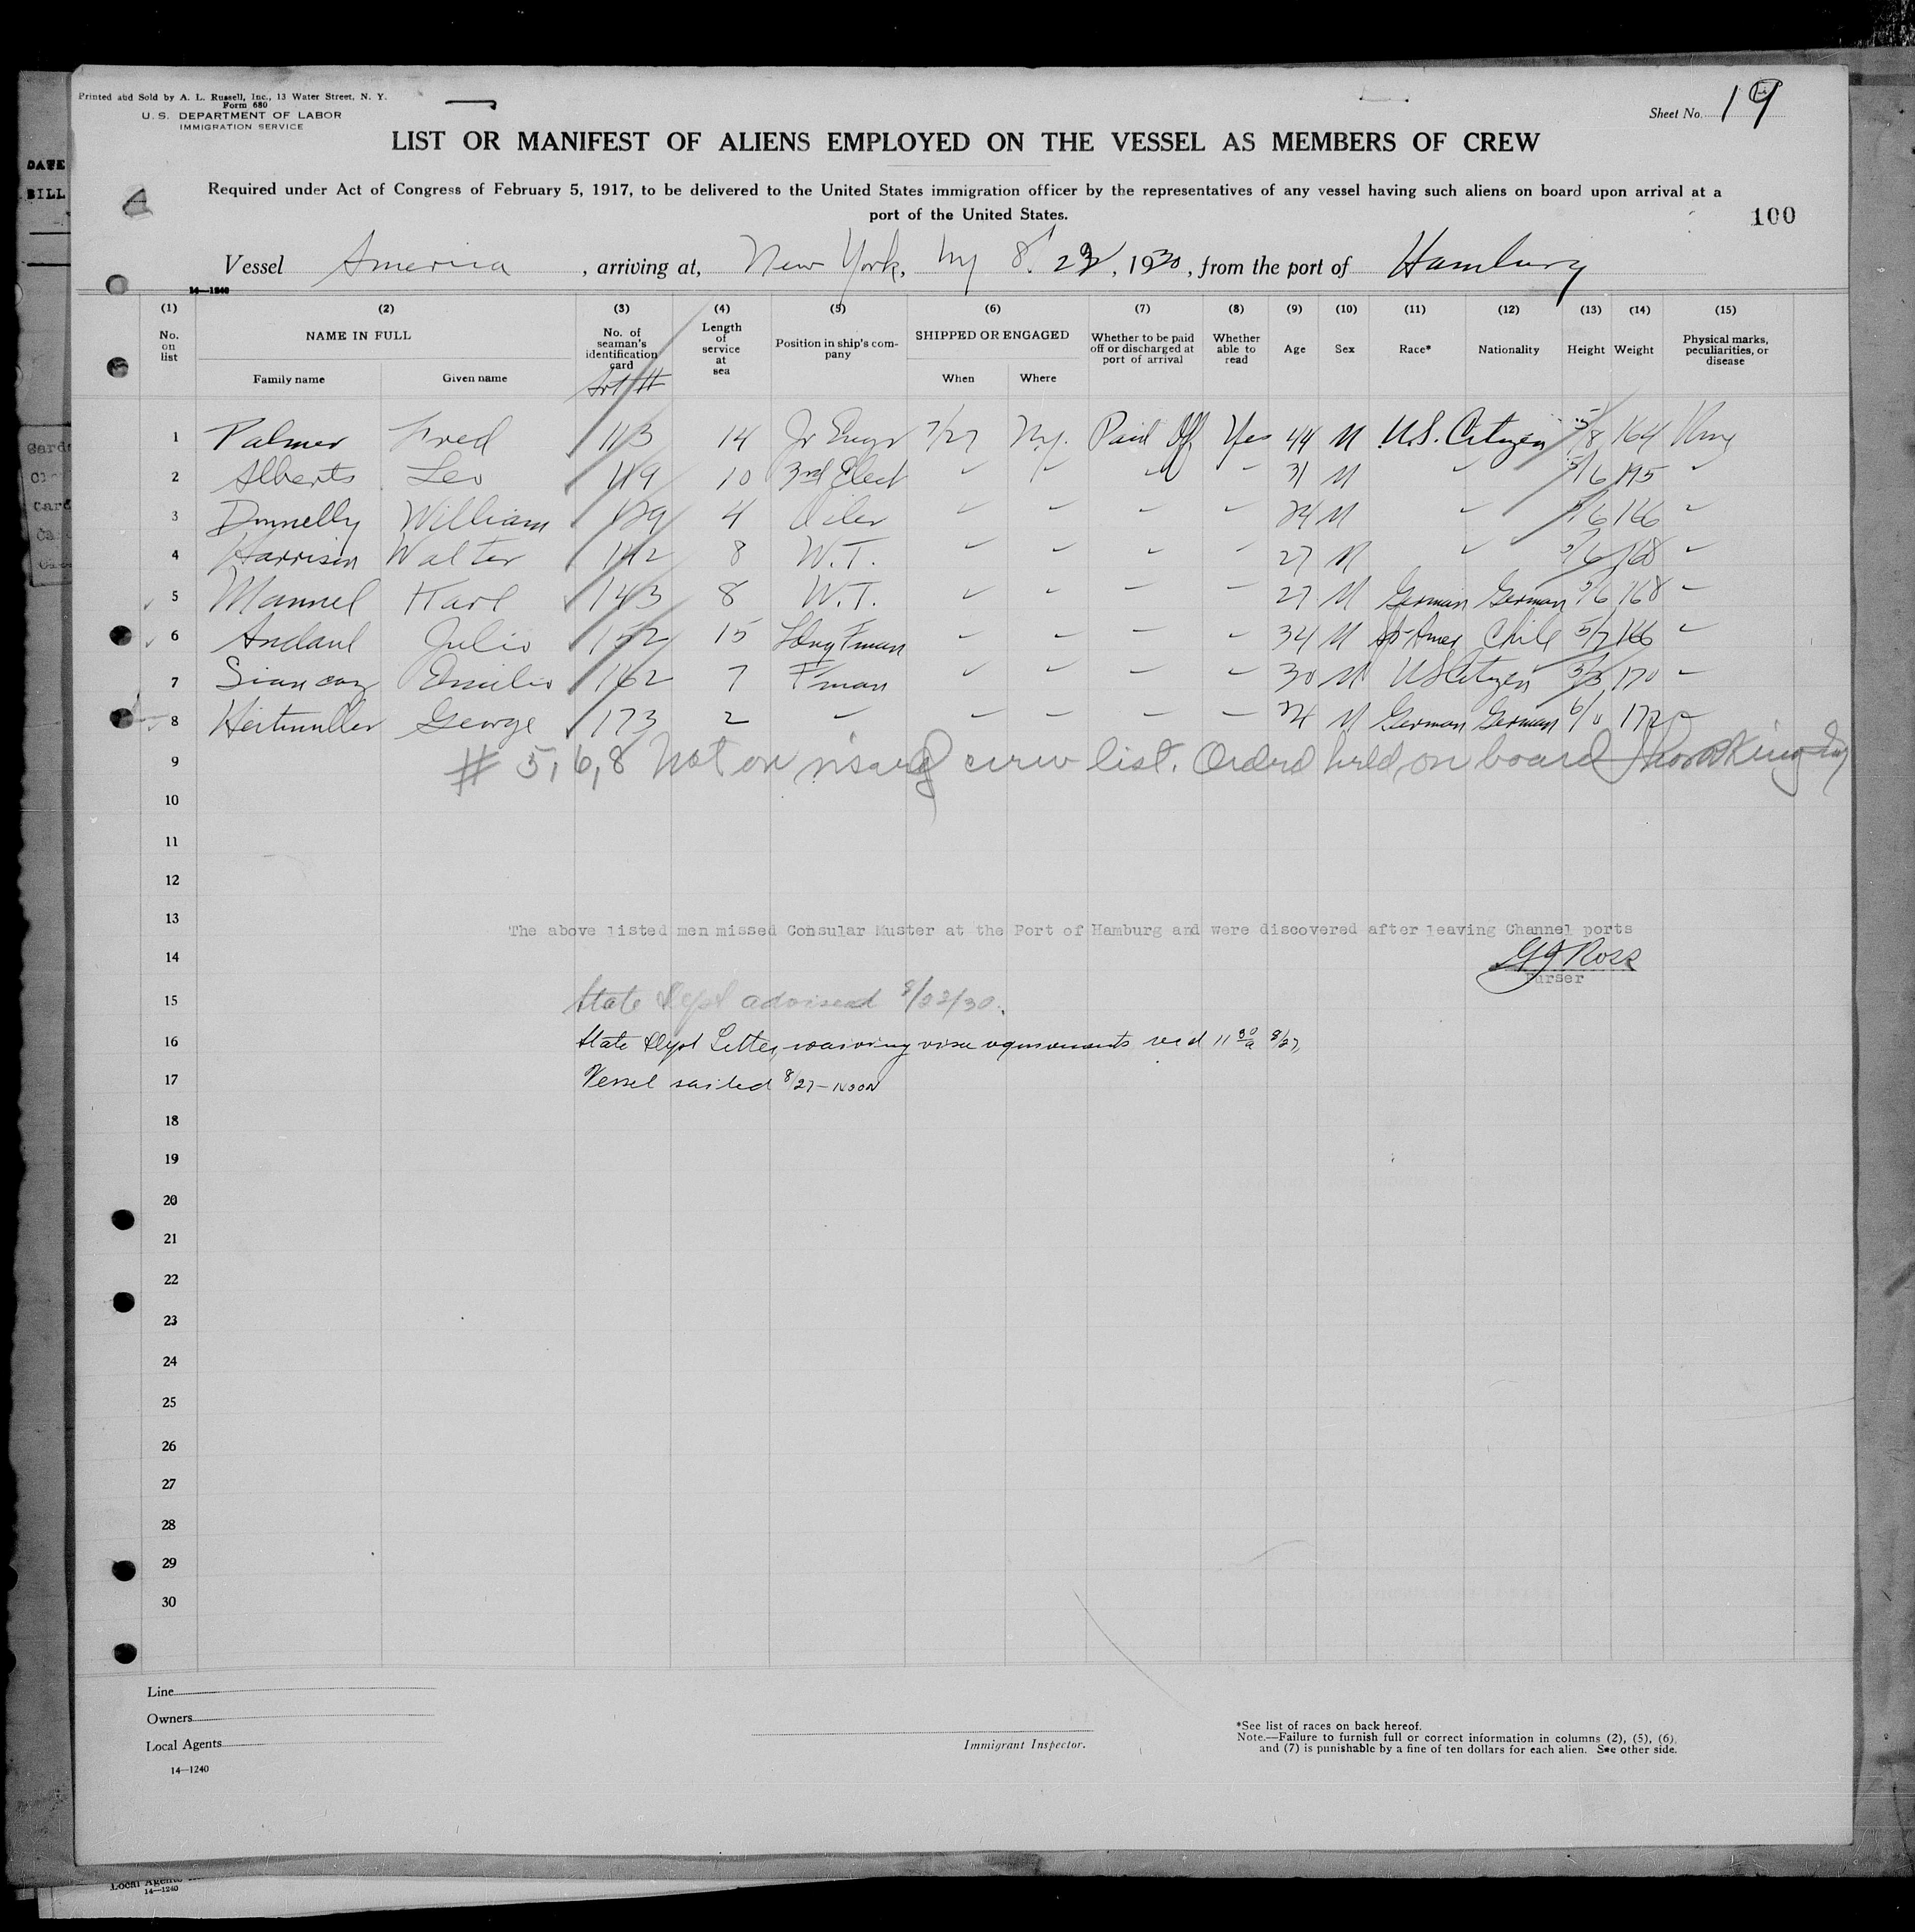 Printed and Sold by A. L. Russell, Inc., 13 Water Street, N. Y.
Form 680
U. S. DEPARTMENT OF LABOR
IMMIGRATION SERVICE
Sheet No. 19
LIST OR MANIFEST OF ALIENS EMPLOYED ON THE VESSEL AS MEMBERS OF CREW
Required under Act of Congress of February 5, 1917, to be delivered to the United States immigration officer by the representatives of any vessel having such aliens on board upon arrival at a
port of the United States.
100
DATE
BILL
Vessel America, arriving at, New York, Ny 8/ 22, 1930, from the port of Hamburg
14—1240
(1) (2) (3) (4) (5) (6) (7) (8) (9) (10) (11) (12) (13) (14) (15)
No. on list NAME IN FULL Family name Given name No. of seaman's identification card Art # Length of service at sea Position in ship's company SHIPPED OR ENGAGED When Where Whether to be paid off or discharged at port of arrival Whether able to read Age Sex Race* Nationality Height Weight Physical marks, peculiarities, or disease
1 Palmer Fred 113 14 Jr Engr 7/27 Ny. Paid Off Yes 44 M U.S. Citizen 5/8 164 None
2 Alberts Leo 119 10 3rd Elect " " " " 31 M " 5/6 "
3 Donnelly William 129 4 Oiler " " " " 24 M " 5/6 166 "
4 Harrison Walter 142 8 W.T. " " " " 27 M " 5/6 168 "
5 Mannel Karl 143 8 W.T. " " " " 27 M German German 5/6 168 "
6 Andaul Julio 152 15 F'man " " " " 34 M So-Amer Chile 5/7 166 "
7 Emilio 162 7 F'man " " " " 30 M US Citizen 5/3 170 "
8 Heitmuller George 173 2 " " " " " 24 M German German 6/0 172 "
9 # 5, 6, 8 Not on visaed crew list. Ordered held on board
10
11
12
13
The above listed men missed Consular Muster at the Port of Hamburg and were discovered after leaving Channel ports
14 G J Ross
Purser
15 State Dept advised 8/22/30.
16 State Dept Letter waiving visa requirements rec'd 11 30 a 8/27,
17 Vessel sailed 8/27 - NOON
18
19
20
21
22
23
24
25
26
27
28
29
30
Line
Owners
Local Agents
14—1240
Immigrant Inspector.
*See list of races on back hereof.
Note.—Failure to furnish full or correct information in columns (2), (5), (6),
and (7) is punishable by a fine of ten dollars for each alien. See other side.
Local Agents
14—1240